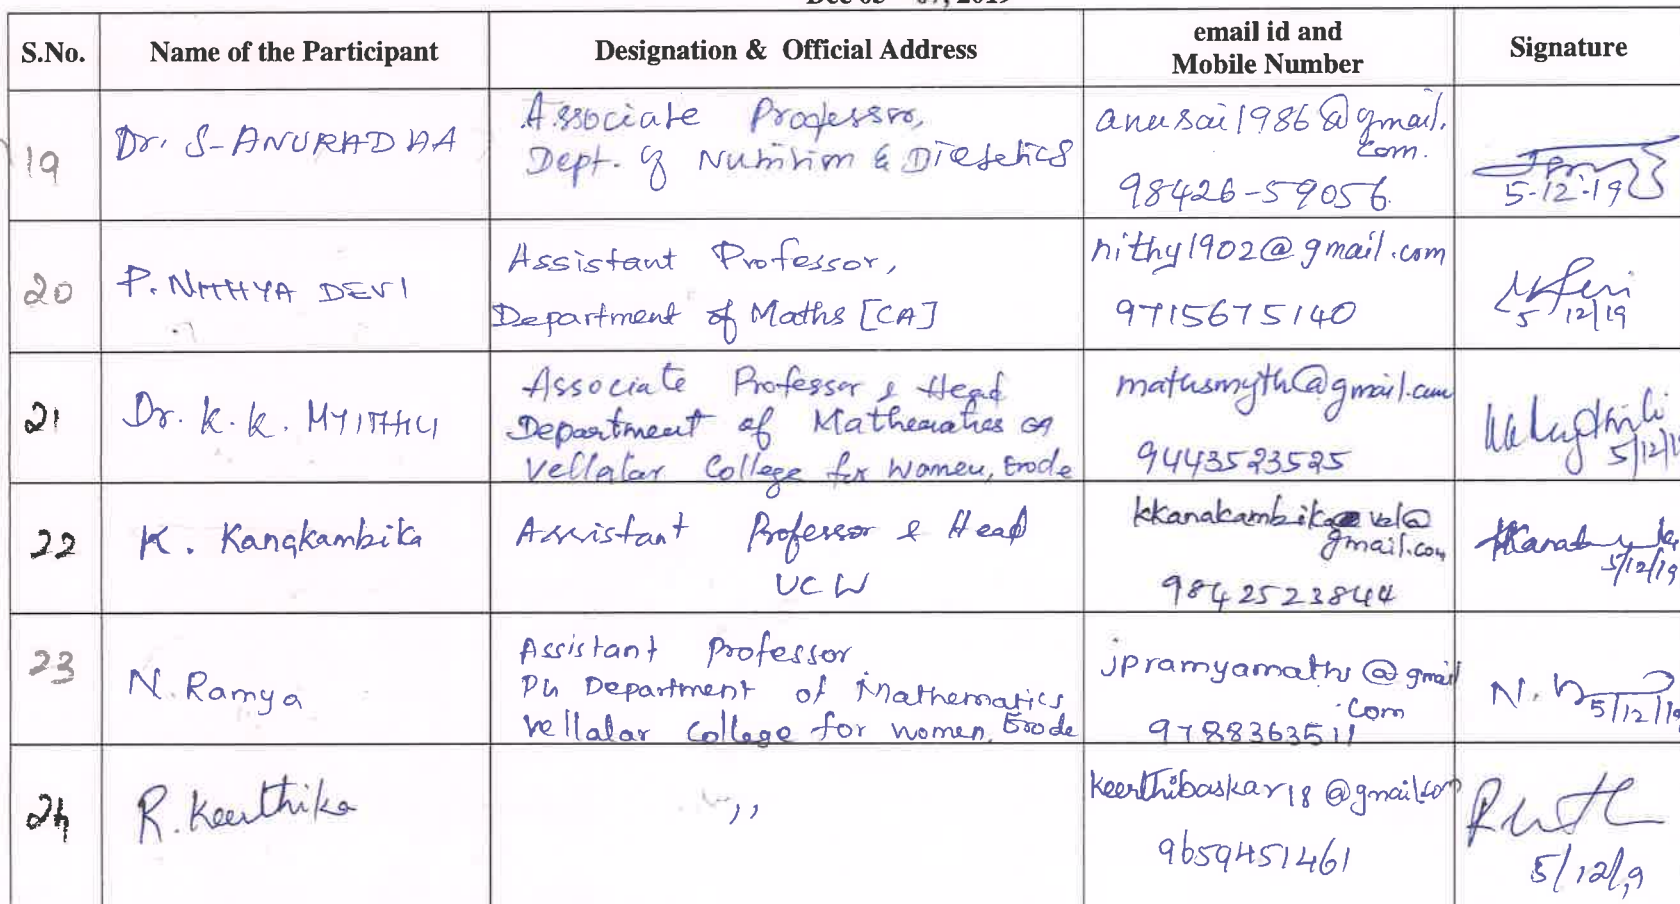 S.No. Name of the Participant Designation & Official Address email id and Mobile Number Signature
19 Dr. S-ANURADHA
Associate Professor,
Dept. of Nutrition & Dietetics
anusai1986@gmail.
com.
98426-59056.
5-12-19
20 P. NITHYA DEVI
Assistant Professor,
Department of Maths [CA]
nithy1902@gmail.com
9715675140
5/12/19
21 Dr. K. K. MYITHILI
Associate Professor & Head
Department of Mathematics CA
Vellalar College for Women, Erode
mathsmyth@gmail.com
9443523525
5/12/19
22 K. Kanakambika
Assistant Professor & Head
VCW
kkanakambika vel@
gmail.com
9842523844
5/12/19
23 N. Ramya
Assistant Professor
PG Department of Mathematics
Vellalar College for women, Erode
jpramyamaths@gmail
.com
9788363511
N.
5/12/19
24 R. Keerthika
,,
keerthibaskar18@gmail.com
9659451461
5/12/19